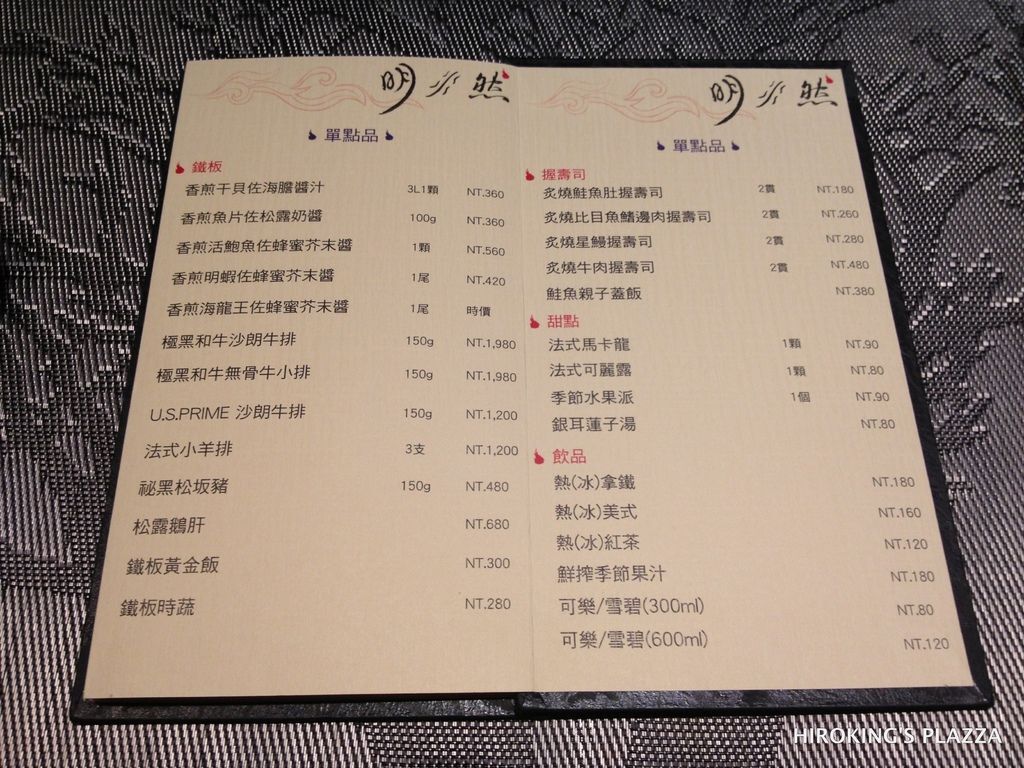 明水然
單點品
鐵板
香煎干貝佐海膽醬汁 3L1顆 NT.360
香煎魚片佐松露奶醬 100g NT.360
香煎活鮑魚佐蜂蜜芥末醬 1顆 NT.560
香煎明蝦佐蜂蜜芥末醬 1尾 NT.420
香煎海龍王佐蜂蜜芥末醬 1尾 時價
極黑和牛沙朗牛排 150g NT.1,980
極黑和牛無骨牛小排 150g NT.1,980
U.S.PRIME 沙朗牛排 150g NT.1,200
法式小羊排 3支 NT.1,200
祕黑松坂豬 150g NT.480
松露鵝肝 NT.680
鐵板黃金飯 NT.300
鐵板時蔬 NT.280
明水然
單點品
握壽司
炙燒鮭魚肚握壽司 2貫 NT.180
炙燒比目魚鰭邊肉握壽司 2貫 NT.260
炙燒星鰻握壽司 2貫 NT.280
炙燒牛肉握壽司 2貫 NT.480
鮭魚親子蓋飯 NT.380
甜點
法式馬卡龍 1顆 NT.90
法式可麗露 1顆 NT.80
季節水果派 1個 NT.90
銀耳蓮子湯 NT.80
飲品
熱(冰)拿鐵 NT.180
熱(冰)美式 NT.160
熱(冰)紅茶 NT.120
鮮搾季節果汁 NT.180
可樂/雪碧(300ml) NT.80
可樂/雪碧(600ml) NT.120
HIROKING'S PLAZZA